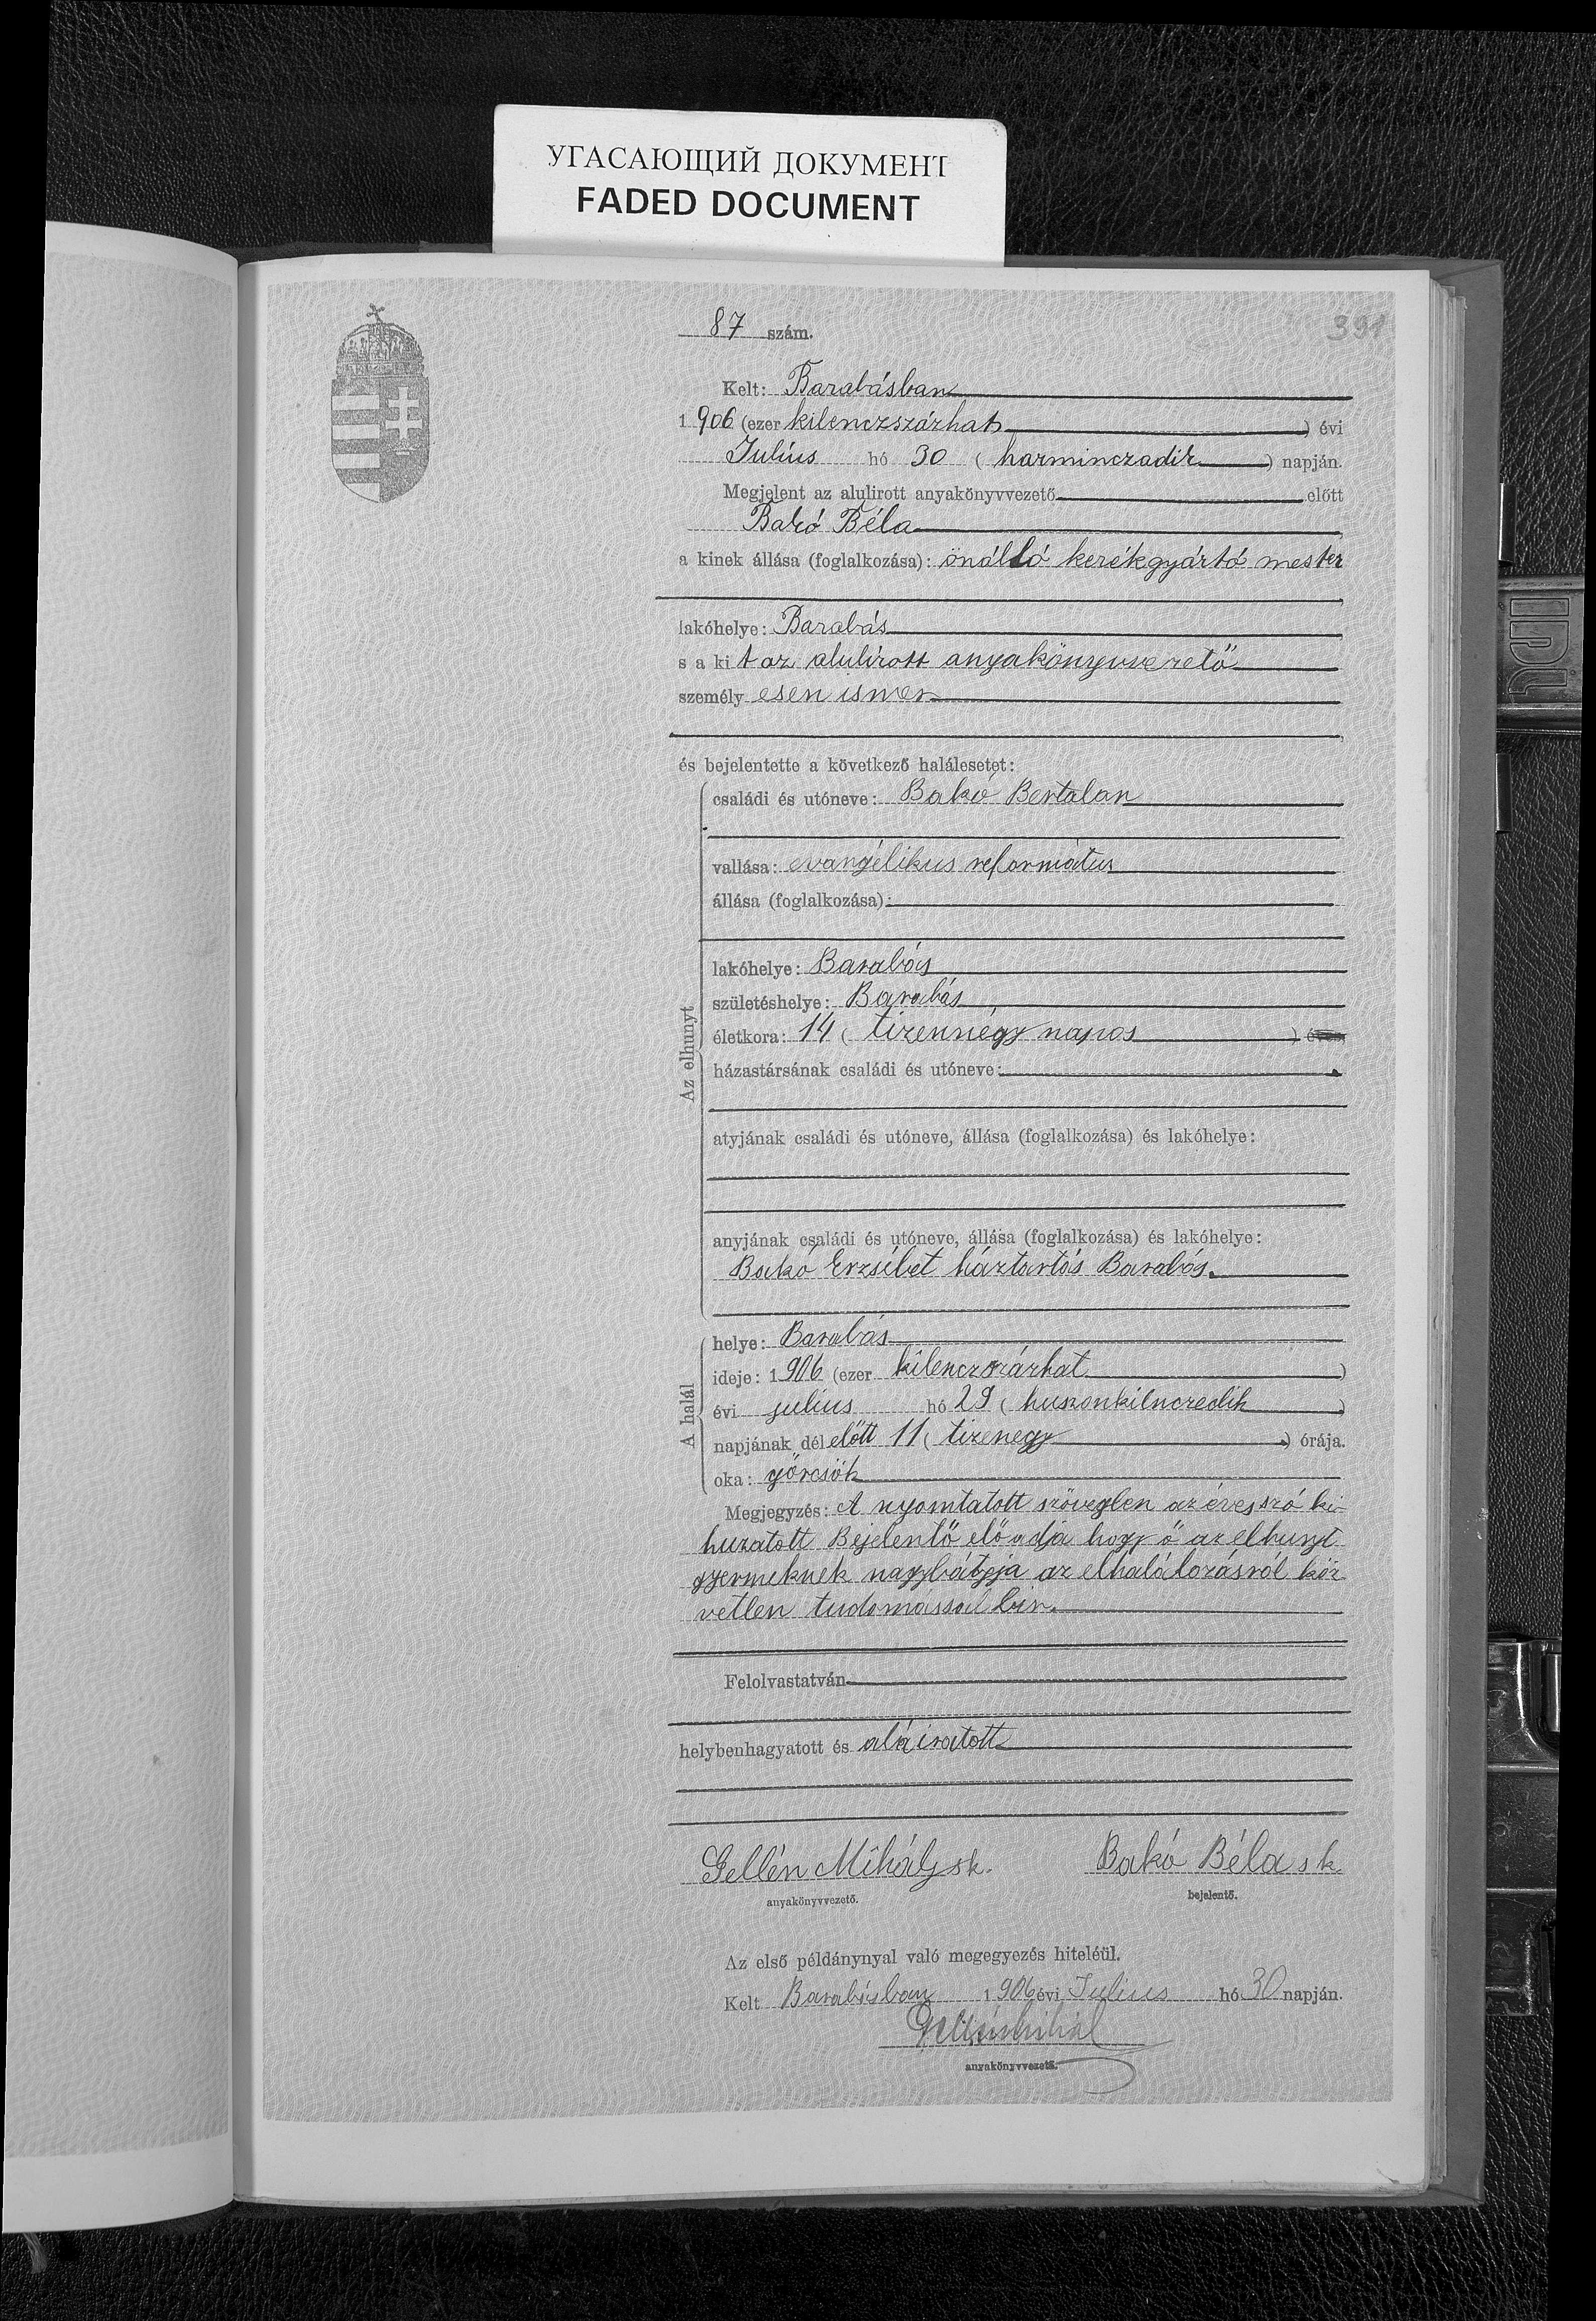 УГАСАЮЩИЙ ДОКУМЕНТ
FADED DOCUMENT
391
87 szám.
Kelt: Barabásban
1906 (ezer kilenczszázhat) évi
Julius hó 30 (harminczadik) napján.
Megjelent az alulirott anyakönyvvezető előtt
Bakó Béla
a kinek állása (foglalkozása): önálló kerékgyártó mester
lakóhelye: Barabás
s a kit az alulirott anyakönyvvezető
személyesen ismer
és bejelentette a következő halálesetet:
Az elhunyt
családi és utóneve: Bakó Bertalan
vallása: evangélikus református
állása (foglalkozása):
lakóhelye: Barabás
születéshelye: Barabás
életkora: 14 (tizennégy napos) éves
házastársának családi és utóneve:
atyjának családi és utóneve, állása (foglalkozása) és lakóhelye:
anyjának családi és utóneve, állása (foglalkozása) és lakóhelye:
Bakó Erzsébet háztartás Barabás.
A halál
helye: Barabás
ideje: 1906 (ezer kilenczszázhat)
évi julius hó 29 (huszonkilenczedik)
napjának délelőtt 11 (tizenegy) órája.
oka: görcsök
Megjegyzés: A nyomtatott szövegben az éves szó ki-
huzatott Bejelentő előadja hogy ő az elhunyt
gyermeknek nagybátyja az elhalálozásról köz
vetlen tudomással bir.
Felolvastatván
helybenhagyatott és aláiratott
Gellén Mihály sk. Bakó Béla sk
anyakönyvvezető. bejelentő.
Az első példánynyal való megegyezés hiteléül.
Kelt Barabásban 1906 évi Julius hó 30 napján.
Gellén Mihál
anyakönyvvezető.